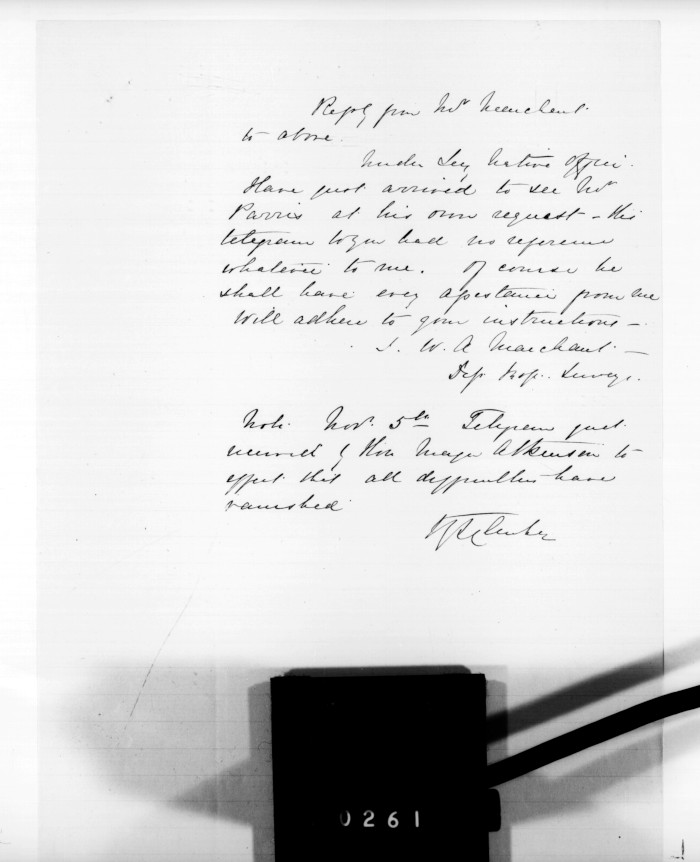 Reply from Mr Marchant
to above.
Under Secy Native Office.
Have just arrived to see Mr
Parris at his own request – His
telegram to you had no reference
whatever to me. Of course he
shall have every assistance from me
Will adhere to your instructions –
J. W. A Marchant –
Dep. Insp. Surveys.
Note Nov. 5th Telegram just
received by Hon Major Atkinson to
effect that all difficulties have
vanished
0261